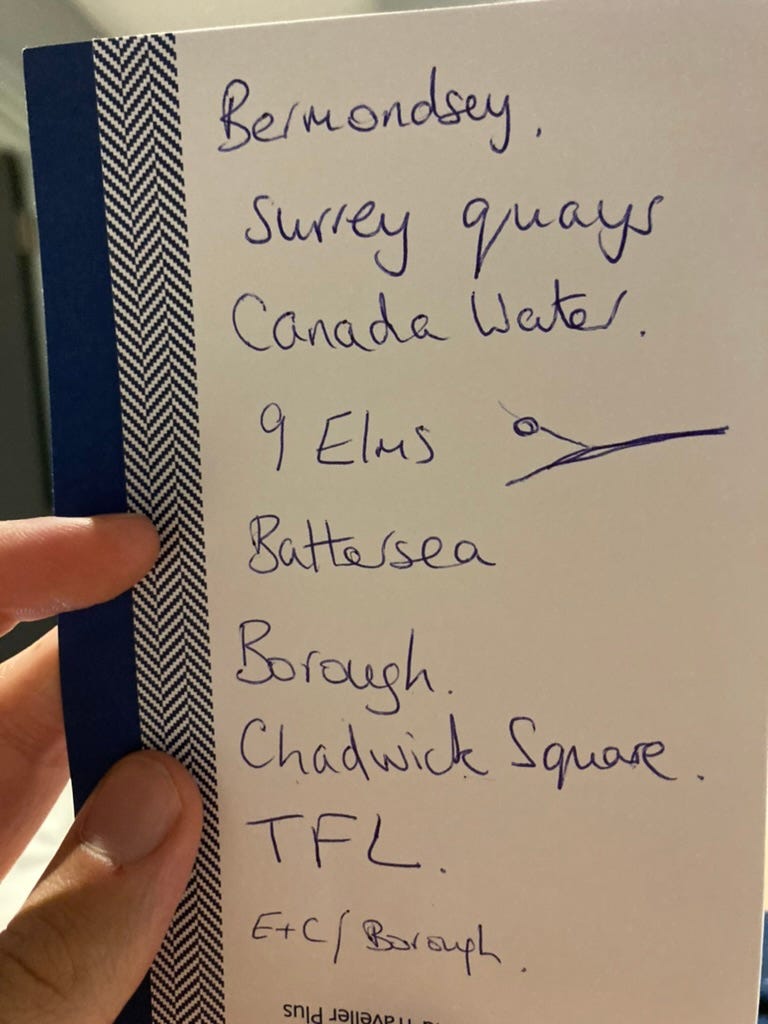 Bermondsey.
Surrey quays
Canada Water.
9 Elms
Battersea
Borough.
Chadwick Square.
TFL.
E+C/ Borough.
Traveller Plus